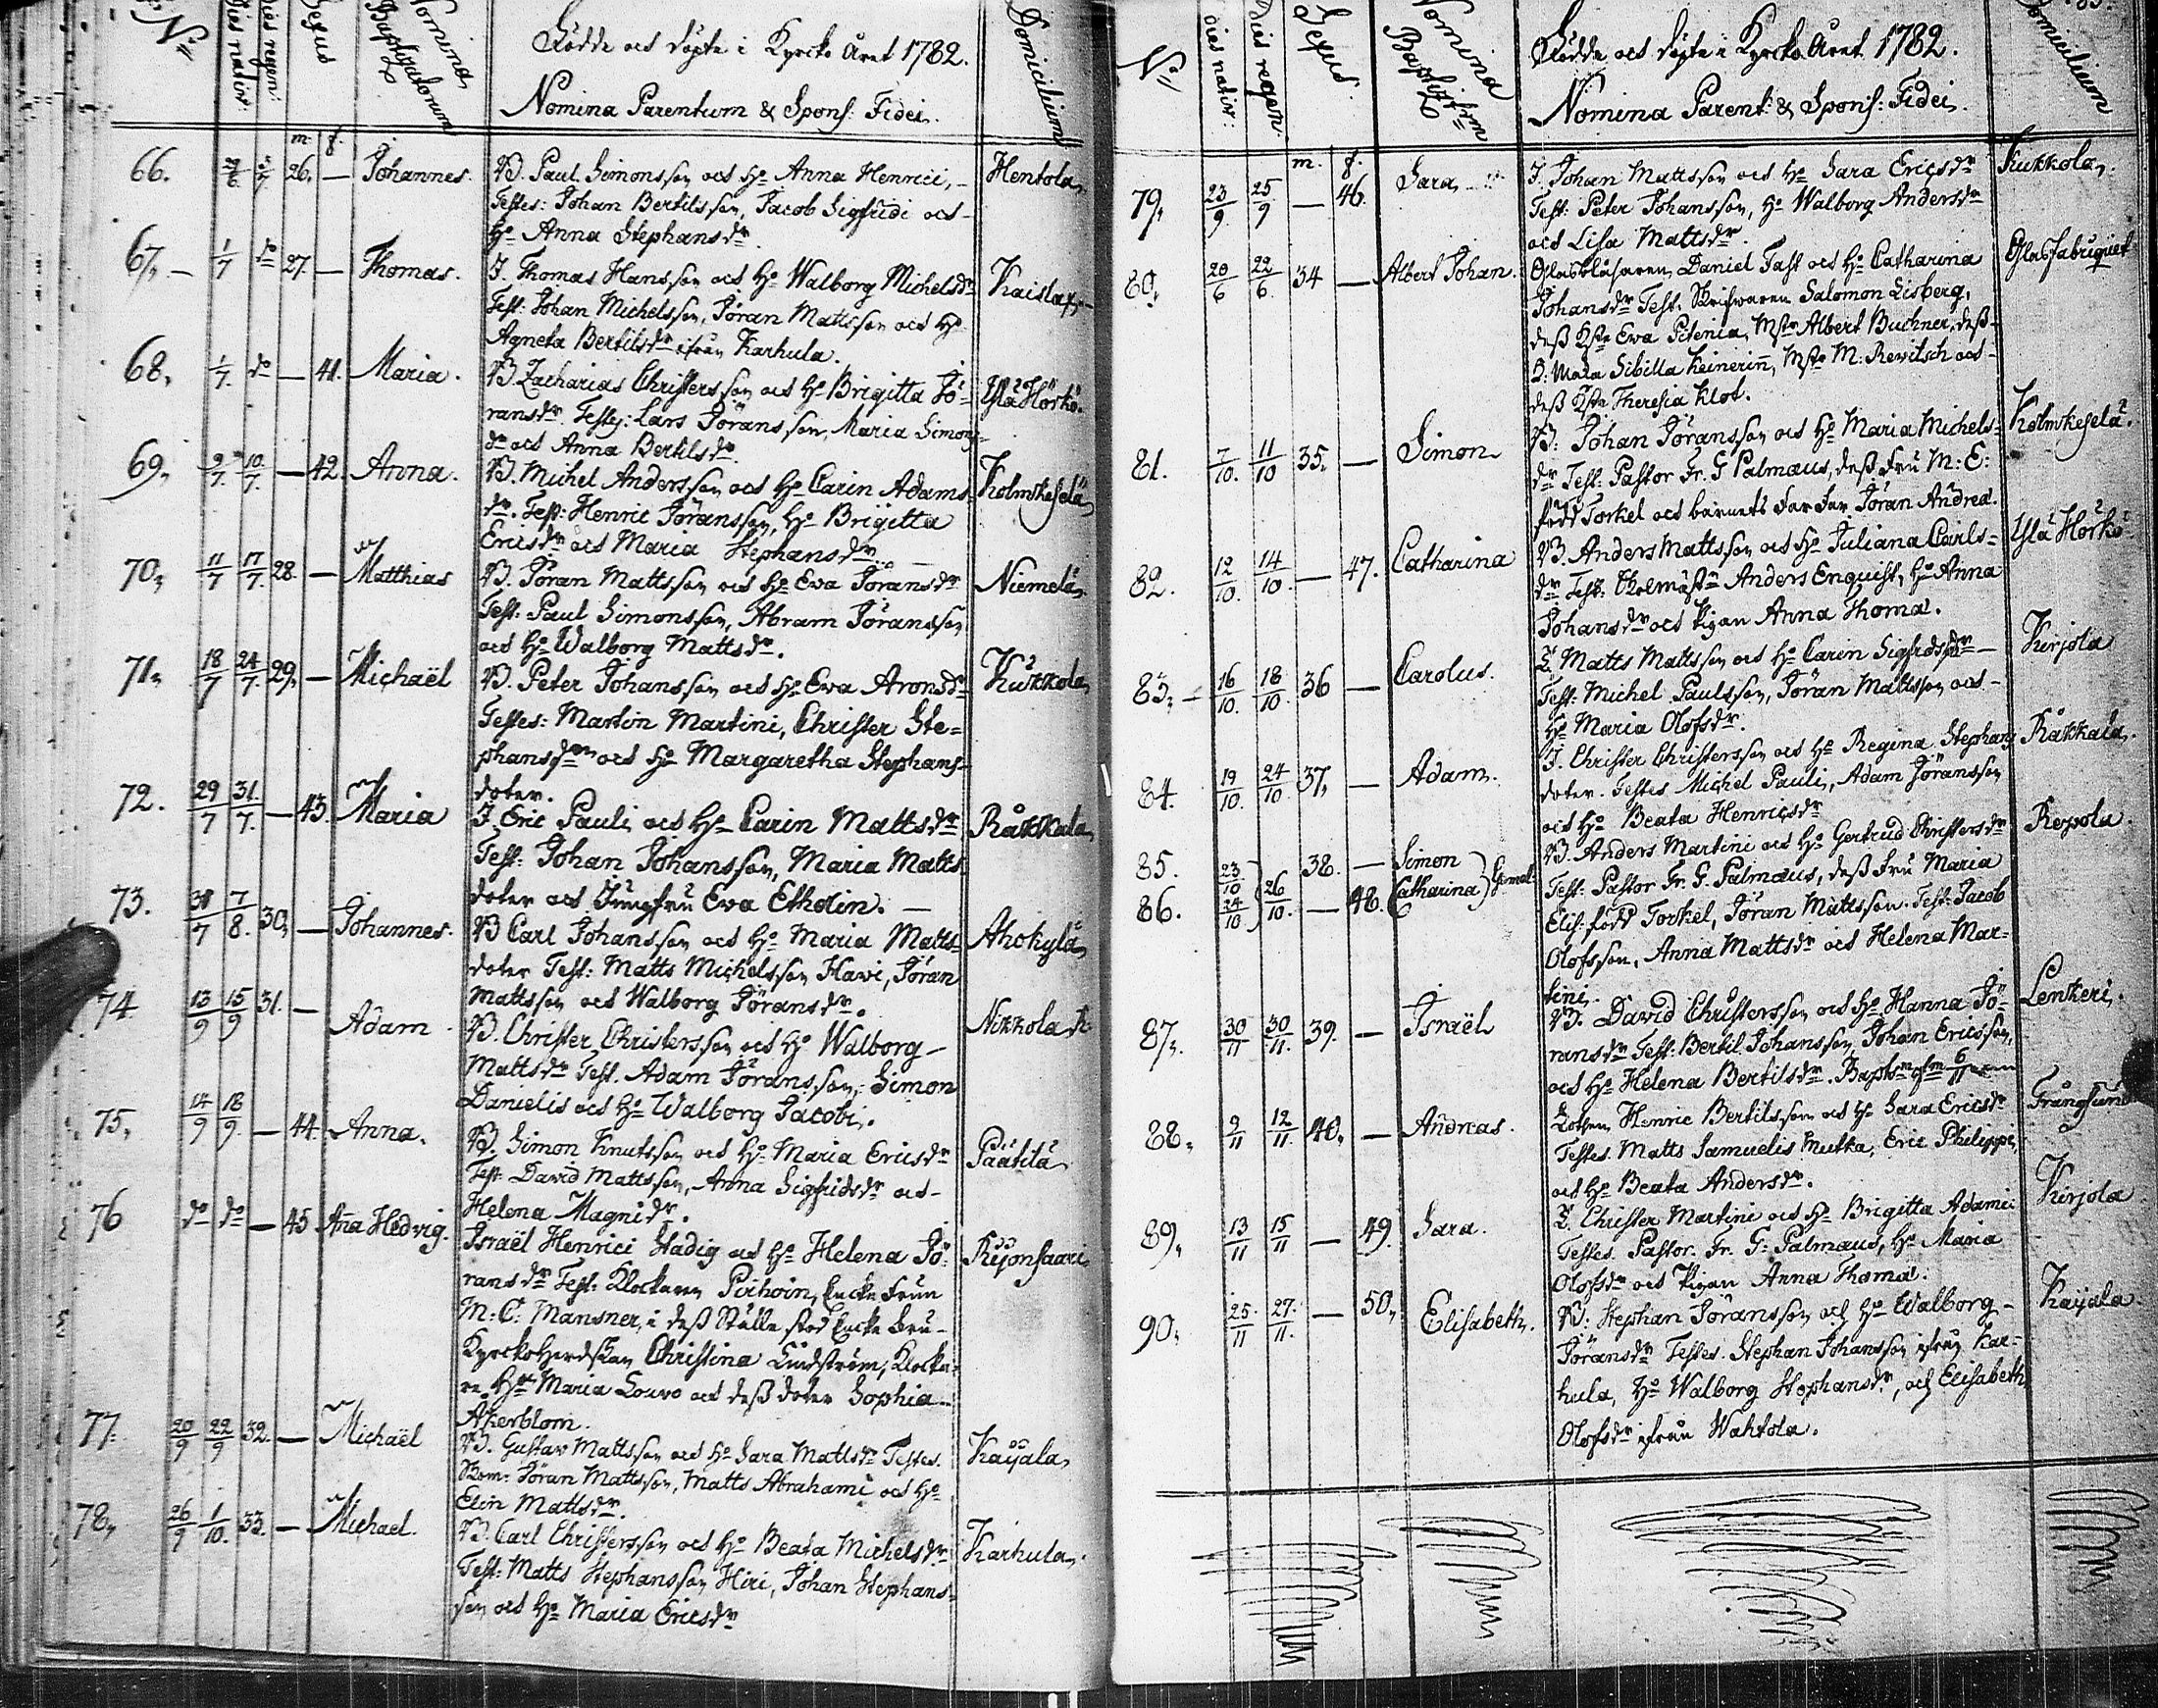 N:o
Dies nativ:
Dies regen:
Sexus
Nomina Baptizatorum
Födde och döpte i Kyrcko Året 1782.
Nomina Parentum & Spons: Fidei.
Domicilium
m. f.
66. 6 7 26. — Johannes. B. Paul Simonsson och H:o Anna Henrici, — Hentola,
Testes: Johan Bertilsson, Jacob Sigfridi och
H:o Anna Stephansd:r
67, — 1/7 d:o 27. — Thomas. J. Thomas Hansson och H:o Walborg Michelsd:r Kaislax,
Test: Johan Michelsson, Jöran Mattsson och H:o
Agneta Bertilsd:r ifrån Karhula.
68, 1/7. d:o — 41. Maria. B. Zacharias Christersson och H:o Brigitta Jö- Ylä Hörkö.
ransd:r. Testes: Lars Jöransson, Maria Simons-
d:r och Anna Bertilsd:r
69, 9/7. 10/7. — 42. Anna. B. Michel Andersson och H:o Carin Adams Kolmikeselä,
d:r. Test: Henric Jöransson, H:o Brigitta
Ericsd:r och Maria Stephansd:r
70, 11/7 17/7. 28. — Matthias B. Jöran Mattsson och H:o Ewa Jöransd:r Niemelä,
Test: Paul Simonsson, Abram Jöransson
och H:o Walborg Mattsd:r.
71, 18/7 24/7. 29, — Michaël B. Peter Johansson och H:o Ewa Aronsd:r Kukkola,
Testes: Martin Martini, Christer Ste=
phans och H:o Margaretha Stephans-
doter.
72. 29/7 31/7. — 43. Maria J. Eric Pauli och H:o Carin Mattsd:r Råkkala,
Test: Johan Johansson, Maria Matts
doter och Jungfru Ewa Etholin. —
73. 31/7 7/8. 30, — Johannes. B Carl Johansson och H:o Maria Matts= Ahokylä,
doter Test: Matts Michelsson Hawi, Jöran
Mattsson och Walborg Jöransd:r.
74 13/9 15/9 31. — Adam. B. Christer Christersson och H:o Walborg — Nikkola
Mattsd:r Test. Adam Jöransson, Simon
Danielis och H:o Walborg Jacobi.
75, 14/9 18/9. — 44. Anna. B. Simon Knutsson och H:o Maria Ericsd:r Päätilä,
Test: David Mattsson, Anna Sigfridsd:r och —
Helena Magnid:r.
76 d:o d:o — 45 Anna Hedvig. Israël Henrici Stadig och H:o Helena Jö- Rijonsaari,
ransd:r Test: Klockaren Pirhoin, Encke Frun
M: C: Mansner, i dess Ställe stod Encke Fru-
KyrckoHerdskan Christina Lindström, Klocka-
re H:o Maria Louvo och dess doter Sophia —
Akerblom.
77. 20/9 22/9 32. — Michaël B. Gustav Mattsson och H:o Sara Mattsd:r Testes. Kayala,
Jöran Mattsson, Matts Abrahami och H:o
Elin Mattsd:r.
78, 26/9 1/10. 33. — Michael. B. Carl Christersson och H:o Beata Michelsd:r Karhula,
Test: Matts Stephansson Hiri, Johan Stephans-
son och H:o Maria Ericsd:r
N:o
Dies nativ:
Dies regen:
Sexus.
Nomina Baptizm
Födde och döpte i Kyrcko Året 1782.
Nomina Parent: & Spons: Fidei.
Domicilium
m. f.
79, 23/9 25/9 — 46. Sara, J. Johan Mattsson och H:o Sara Ericsd:r Kukkola,
Test: Peter Johansson, H:o Walborg Andersd:r
och Lisa Mattsd:r.
80, 20/6 22/6. 34 — Albert Johan. Glasblåsaren Daniel Tast och H:o Catharina Glasfabriquet
Johansd:r Test. Skrifwaren Salomon Lisberg,
dess Ewa Pitenia, Mst:r Albert Buchner, dess
Sibilla Keinerin, Mst:r M: Rewitsch och
dess Theresia Klot.
81. 7/10. 11/10 35, — Simon B: Johan Jöransson och H:o Maria Michels= Kolmikeselä.
d:r Test: Pastor Fr. G Palmæus, dess Fru M: E:
född Torkel och barnets Far Far Jöran Andreæ.
82. 12/10. 14/10. — 47. Catharina B. Anders Mattsson och H:o Juliana Carls= Ylä Hörkö
d:r Test: Anders Enquist, H:o Anna
Johansd:r och Pigan Anna Thomæ.
83, — 16/10. 18/10. 36 — Carolus. T. Matts Mattsson och H:o Carin Sigfridsd:r — Kirjola
Test: Michel Paulsson, Jöran Mattsson och —
H:o Maria Olofsd:r.
84. 19/10. 24/10. 37, — Adam. J. Christer Christersson och H:o Regina Stephans Råkkala,
doter. Testes Michel Pauli, Adam Jöransson
och H:o Beata Henricsd:r
85. 23/10 38. — Simon B. Anders Martini och H:o Gertrud Christersd:r Repola.
86. 24/10 26/10. — 48. Catharina Gemel. Test: Pastor Fr. G. Palmæus, dess Fru Maria
Elis: född Torkel, Jöran Mattsson. Test: Jacob
Olofsson, Anna Mattsd:r och Helena Mar=
tini.
87, 30/11 30/11. 39. — Israël B. David Christersson och H:o Hanna Jö- Lenkeri.
ransd:r Test: Bertil Johansson, Johan Ericsson,
och H:o Helena Bertilsd:r.
88, 9/11 12/11. 40, — Andreas. Henric Bertilsson och H:o Sara Ericsd:r Trångsund
Testes. Matts Samuelis Mutka, Eric Philippi,
och H:o Beata Andersd:r.
89, 13/11 15/11 — 49. Sara. T. Christer Martini och H:o Brigitta Adami: Kirjola
Testes. Pastor. Fr. G: Palmæus, H:o Maria
Olofsd:r och Pigan Anna Thomæ.
90, 25/11 27/11. — 50, Elisabeth. B: Stephan Jöransson och H:o Walborg — Kayala.
Jöransd:r Testes. Stephan Johansson ifrån Kar-
hula, H:o Walborg Stephansd:r, och Elisabeth
Olofsd:r ifrån Wahtola.